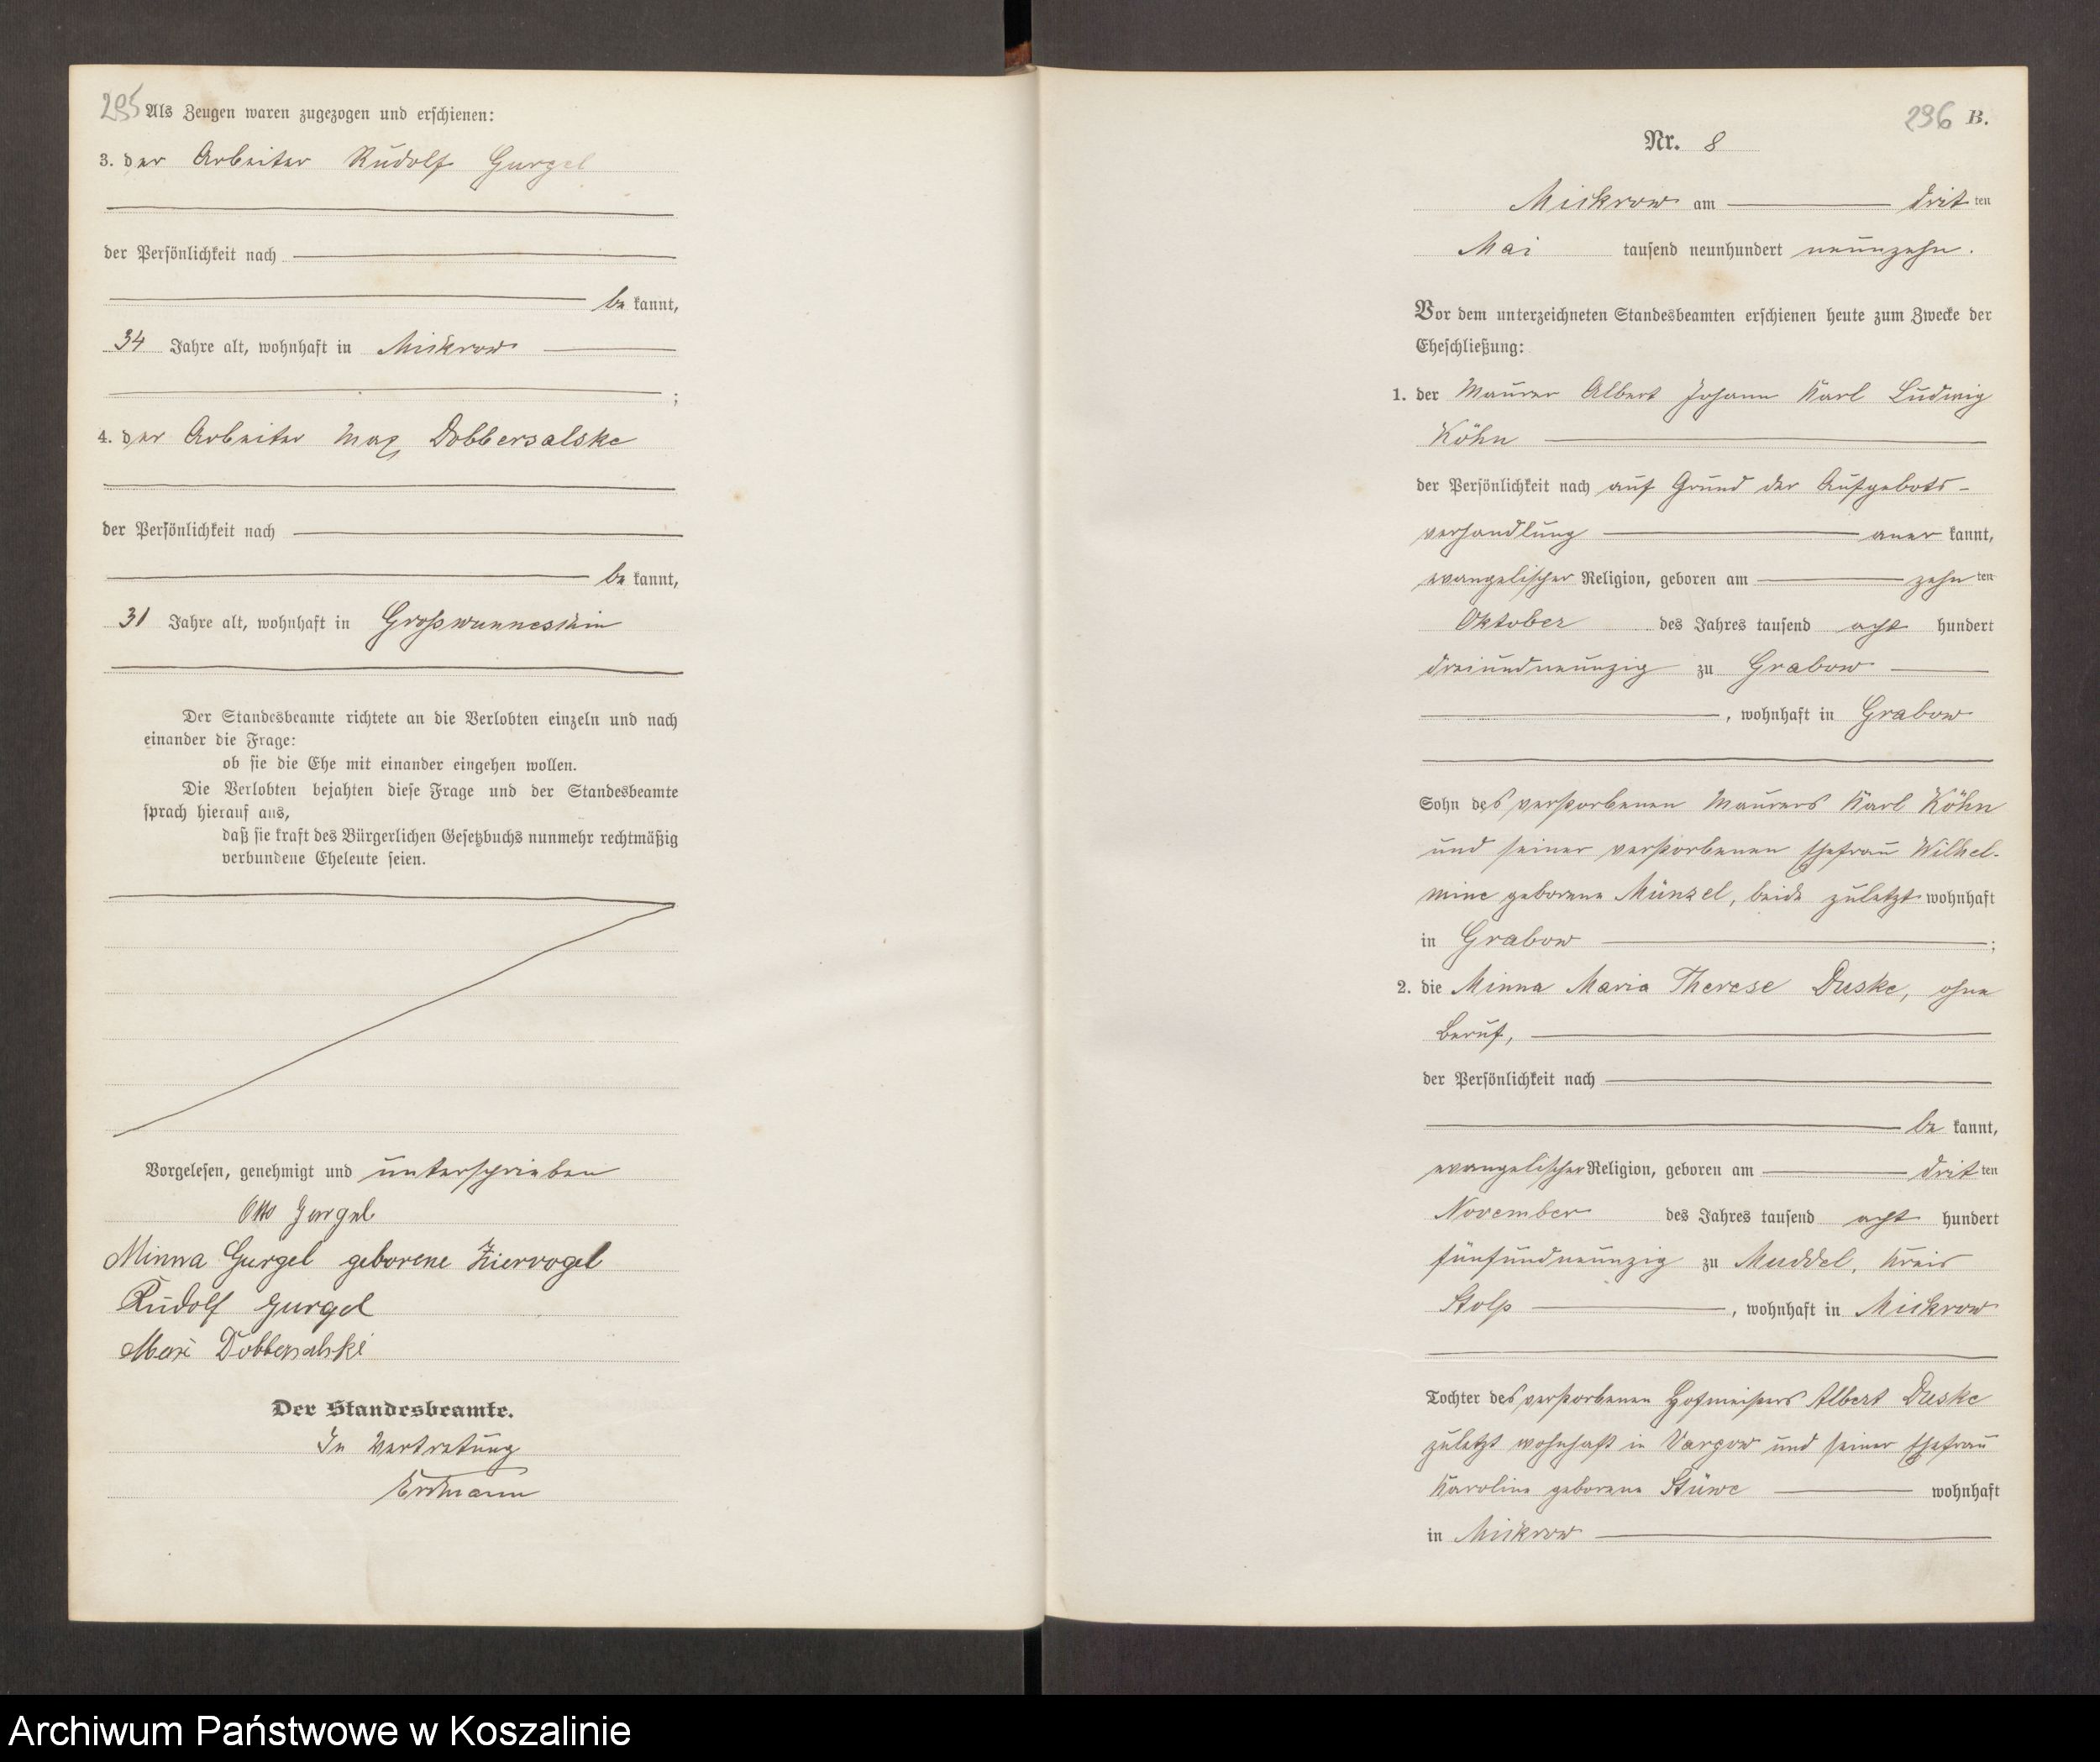 295 Als Zeugen waren zugezogen und erschienen:
3. der Arbeiter Rudolf Gurgel
der Persönlichkeit nach
be kannt,
34 Jahre alt, wohnhaft in Mickrow
;
4. der Arbeiter Max Dobbersalske
der Persönlichkeit nach
be kannt,
31 Jahre alt, wohnhaft in Großwunneschin
Der Standesbeamte richtete an die Verlobten einzeln und nach
einander die Frage:
ob sie die Ehe mit einander eingehen wollen.
Die Verlobten bejahten diese Frage und der Standesbeamte
sprach hierauf aus,
daß sie kraft des Bürgerlichen Gesetzbuchs nunmehr rechtmäßig
verbundene Eheleute seien.
Vorgelesen, genehmigt und unterschrieben
Otto Gurgel
Minna Gurgel geborene Ziervogel
Rudolf Gurgel
Max Dobbersalski
Der Standesbeamte.
In Vertretung
Erdmann
296 B.
Nr. 8
Mickrow am dritten
Mai tausend neunhundert neunzehn.
Vor dem unterzeichneten Standesbeamten erschienen heute zum Zwecke der
Eheschließung:
1. der Maurer Albert Johann Karl Ludwig
Köhn
der Persönlichkeit nach auf Grund der Aufgebots-
verhandlung aner kannt,
evangelischer Religion, geboren am zehnten
Oktober des Jahres tausend acht hundert
dreiundneunzig zu Grabow
, wohnhaft in Grabow
Sohn des verstorbenen Maurers Karl Köhn
und seiner verstorbenen Ehefrau Wilhel-
mine geborene Münzel, beide zuletzt wohnhaft
in Grabow ;
2. die Minna Maria Therese Duske, ohne
Beruf,
der Persönlichkeit nach
be kannt,
evangelischer Religion, geboren am dritten
November des Jahres tausend acht hundert
fünfundneunzig zu Muddel, Kreis
Stolp , wohnhaft in Mickrow
Tochter des verstorbenen Hofmeisters Albert Duske
zuletzt wohnhaft in Vargow und seiner Ehefrau
Karoline geborene Stüwe wohnhaft
in Mickrow
Archiwum Państwowe w Koszalinie